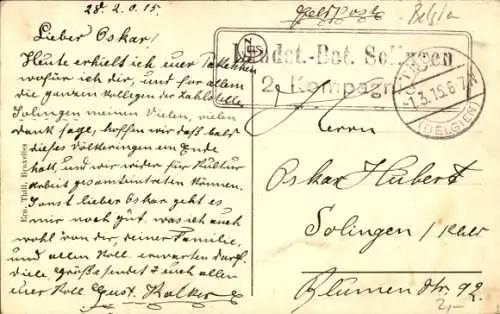 28. 2. 0. 15.
Feldpost
Belgien
Lieber Oskar!
Heute erhielt ich euer
wofür ich dir, und for allem
die ganzen Kollegen der Zahlstelle
Solingen meinen Vielen, vielen
dank sage, hoffen wir daß bald
dieses Völkeringen ein Ende
hatt, und wir wider für Kultur
arbeit zusammen können.
Sonst lieber Oskar geht es
mir noch gut, was ich auch
wohl von dir, deiner Familie,
und allen Koll. erwarten darf.
Viele Größe sendet Euch allen
euer Koll. Gust. Kolker
Ern. Thill, Bruxelles
NELS
Landst.-Bat. Solingen
2. Kompagnie
1.3.15.6-7N
(BELGIEN)
Herrn
Oskar Hubert
Solingen /
Blumen Str. 92.
2,-